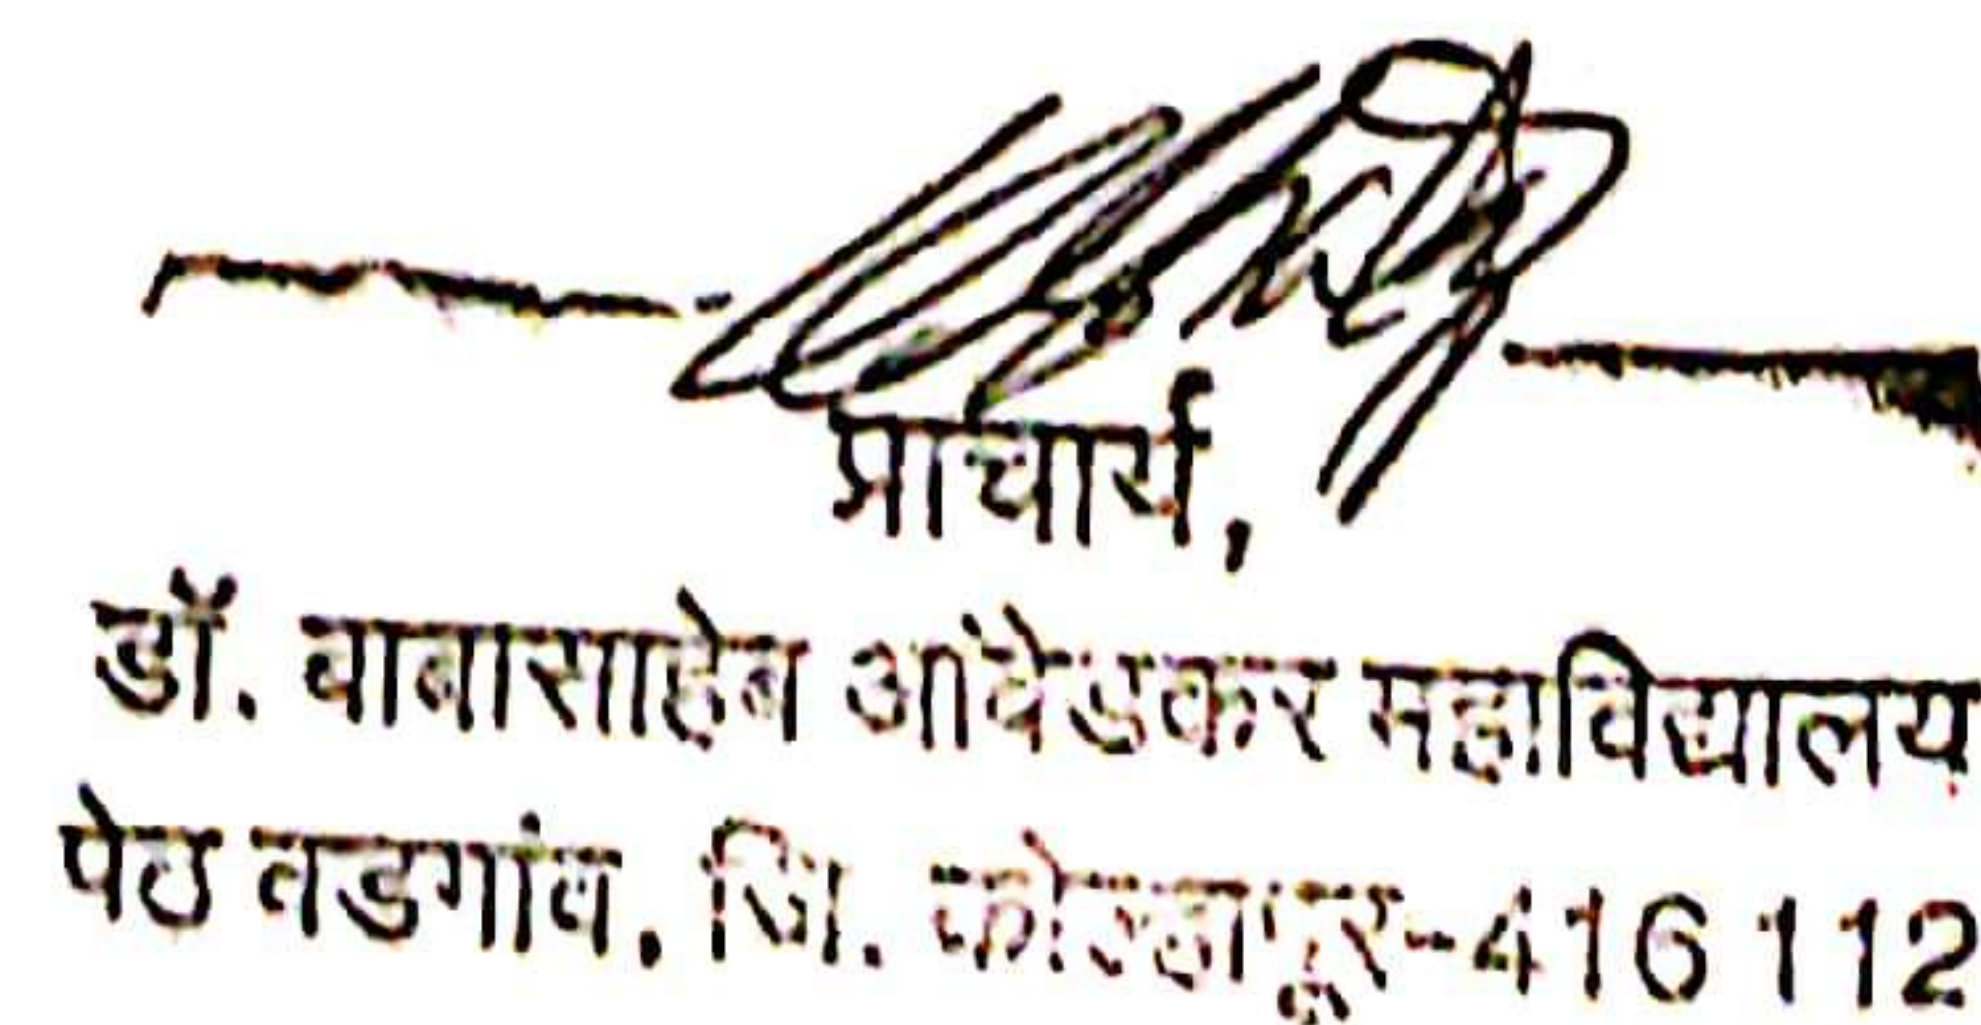 प्राचार्य,
डॉ. बाबासाहेब आंबेडकर महाविद्यालय
पेठ वडगांव, जि. कोल्हापूर-416 112